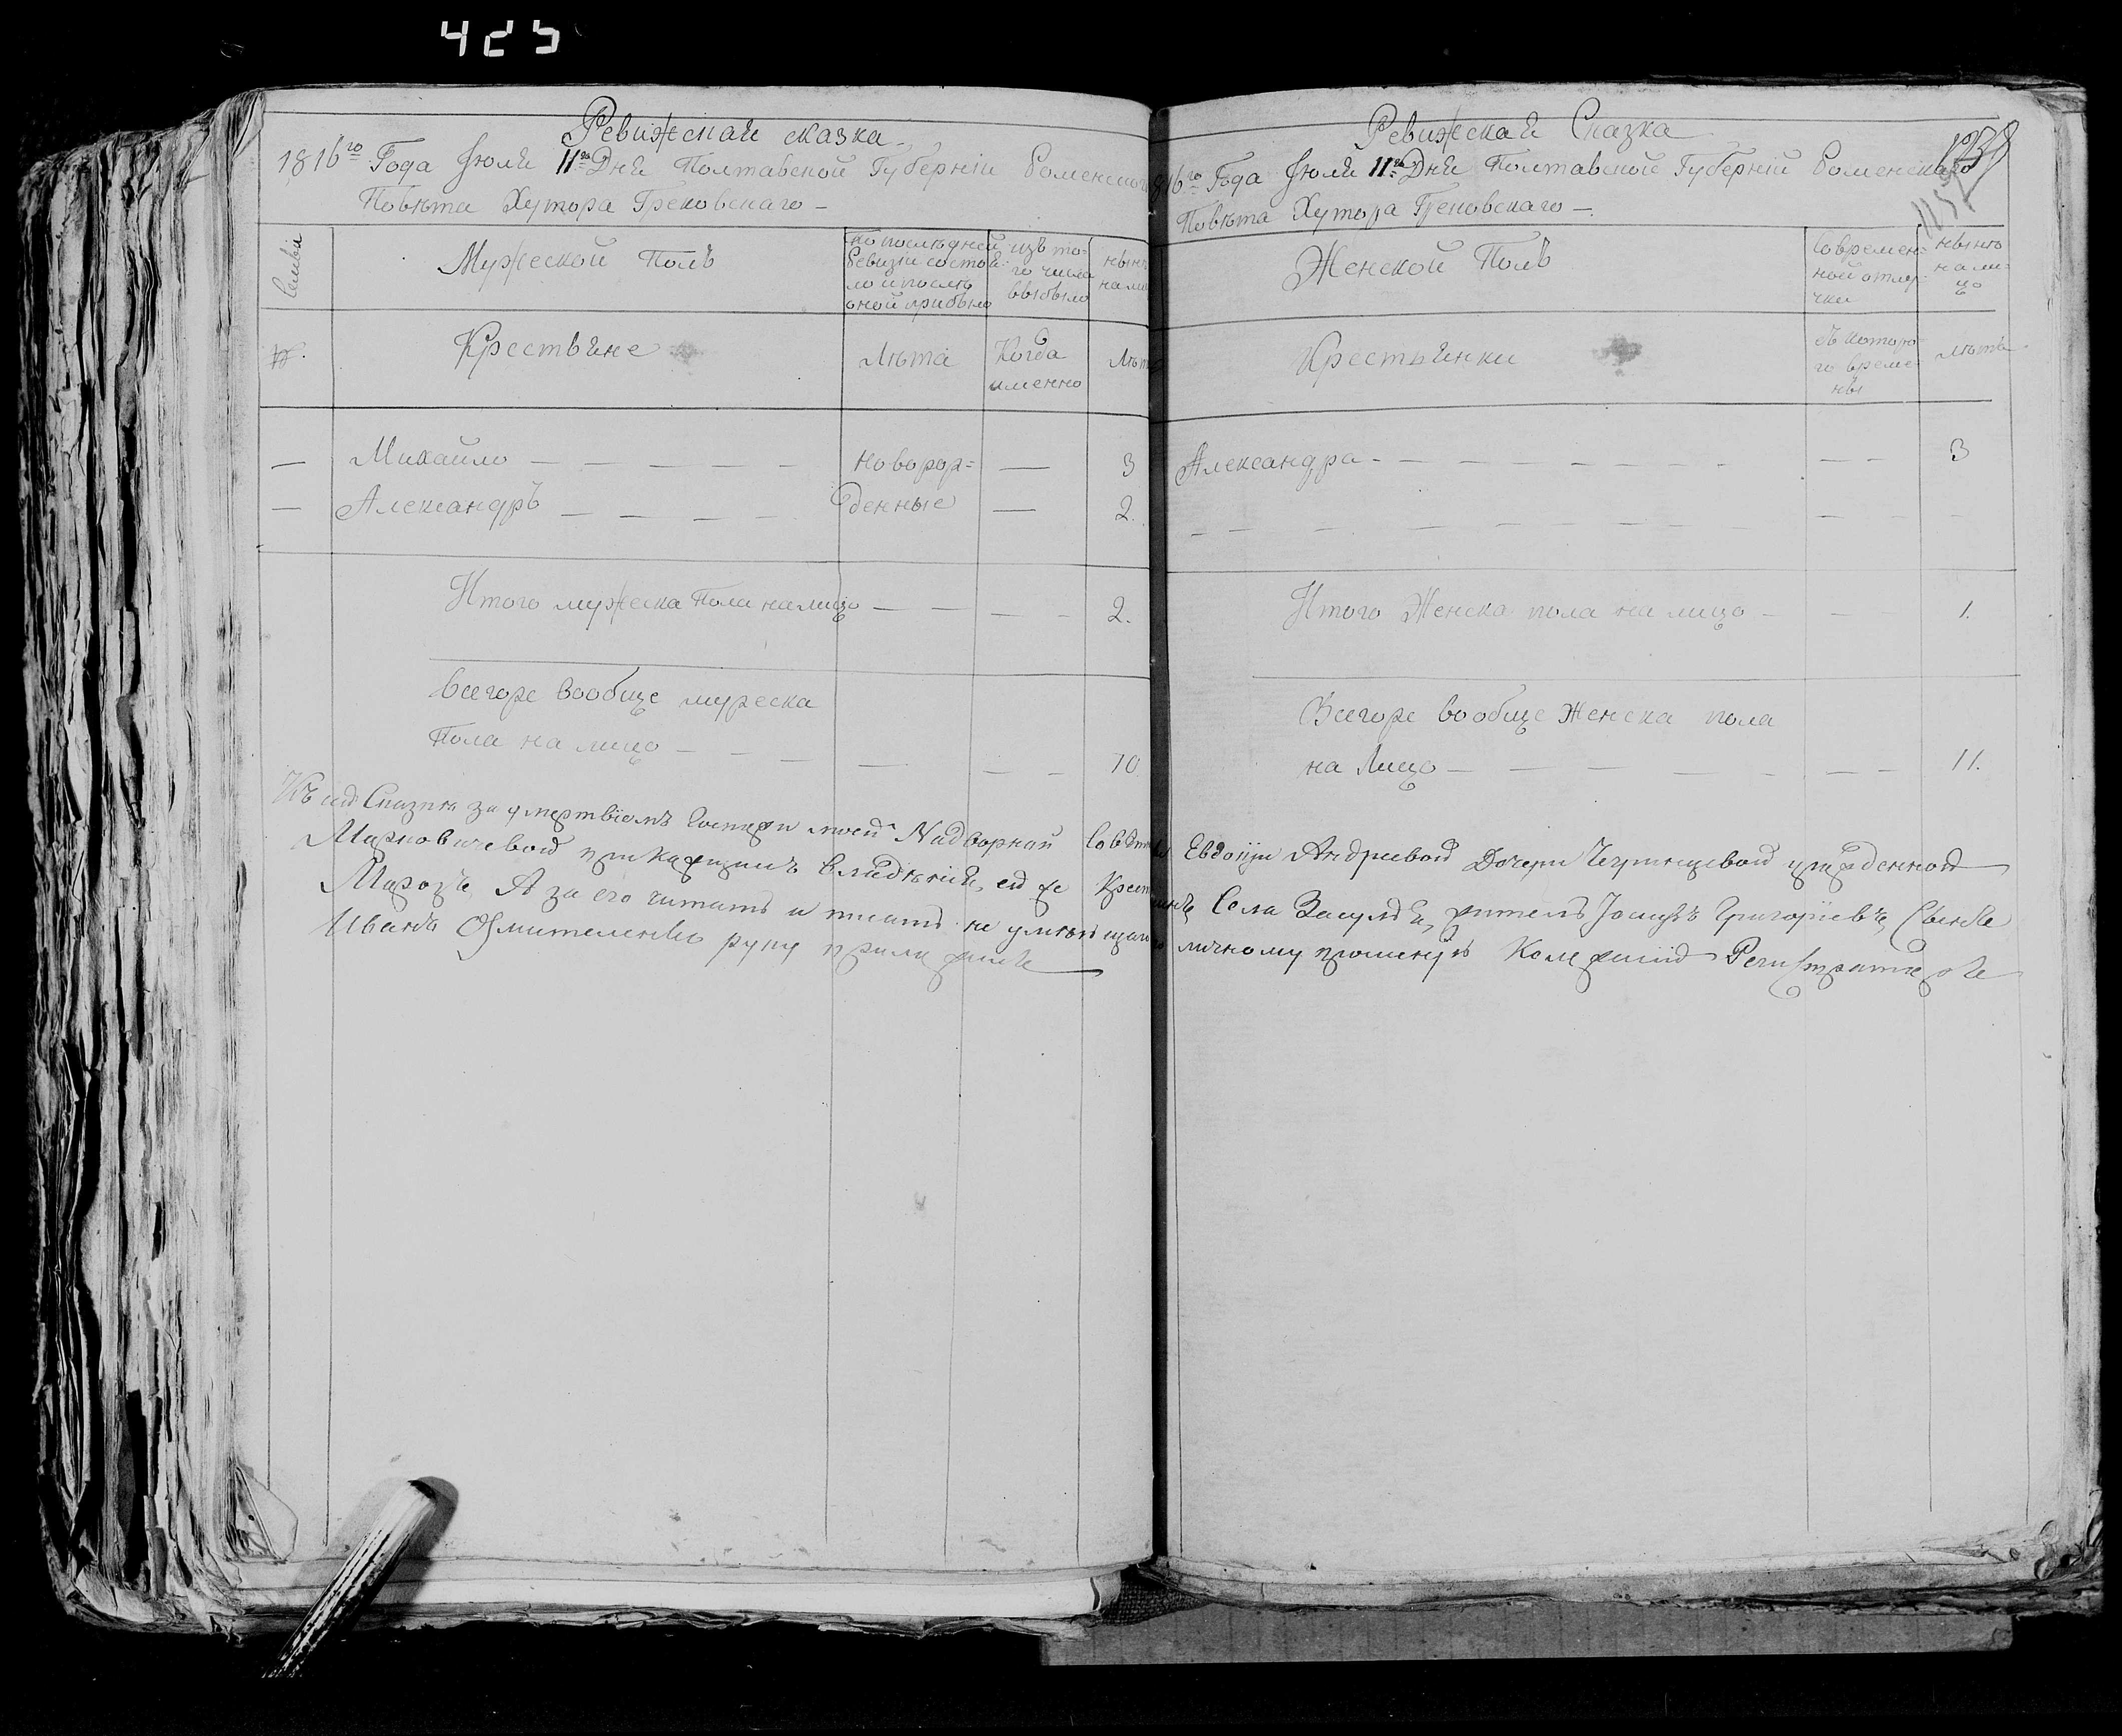 425
Ревижская сказка
1816го Года Июля 11го Дня Полтавской Губерніи Роменского
Повѣта Хутора Грековскаго
Семьи
Мужеской Полъ
по послѣдней
ревизіи состоя-
ло и послѣ
оной прибыло
изъ то-
го числа
выбыло
нынѣ
на ли
№.
Крестьяне
Лѣта
Когда
именно
Лѣта
Михайло
новорож=
3
Александръ
денные
2.
Итого мужеска Пола налицо
2.
Всегоже вообще мужеска
Пола на лицо
10
Ревижская Сказка
1816го Года Июля 11го Дня Полтавской Губерніи Роменскаго
Повѣта Хутора Грековскаго
Женской Полъ
Во времен-
ной отлу-
чки
нынѣ
на ли-
цо
Крестьянки
съ которо-
го време-
ны
Лѣта
Александра
3
Итого Женска пола на лицо
1.
Всегоже вообще Женска пола
на Лицо
11.
Къ сей Сказки за умертвіемъ Госпожи моей Надворной Совѣтн Евдокіи Андреевой Дочери
Марковичевой прикащикъ владѣнія, ей же Крест Села Засулья житель Григоріевъ
Марозъ А за его читать и писать не умѣющаго личному прошенію Колежскій Регистраторъ
Иванъ руку приложилъ